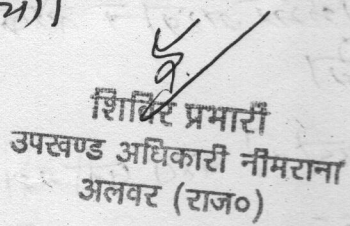 या)।
शिविर प्रभारी
उपखण्ड अधिकारी नीमराना
अलवर (राज०)